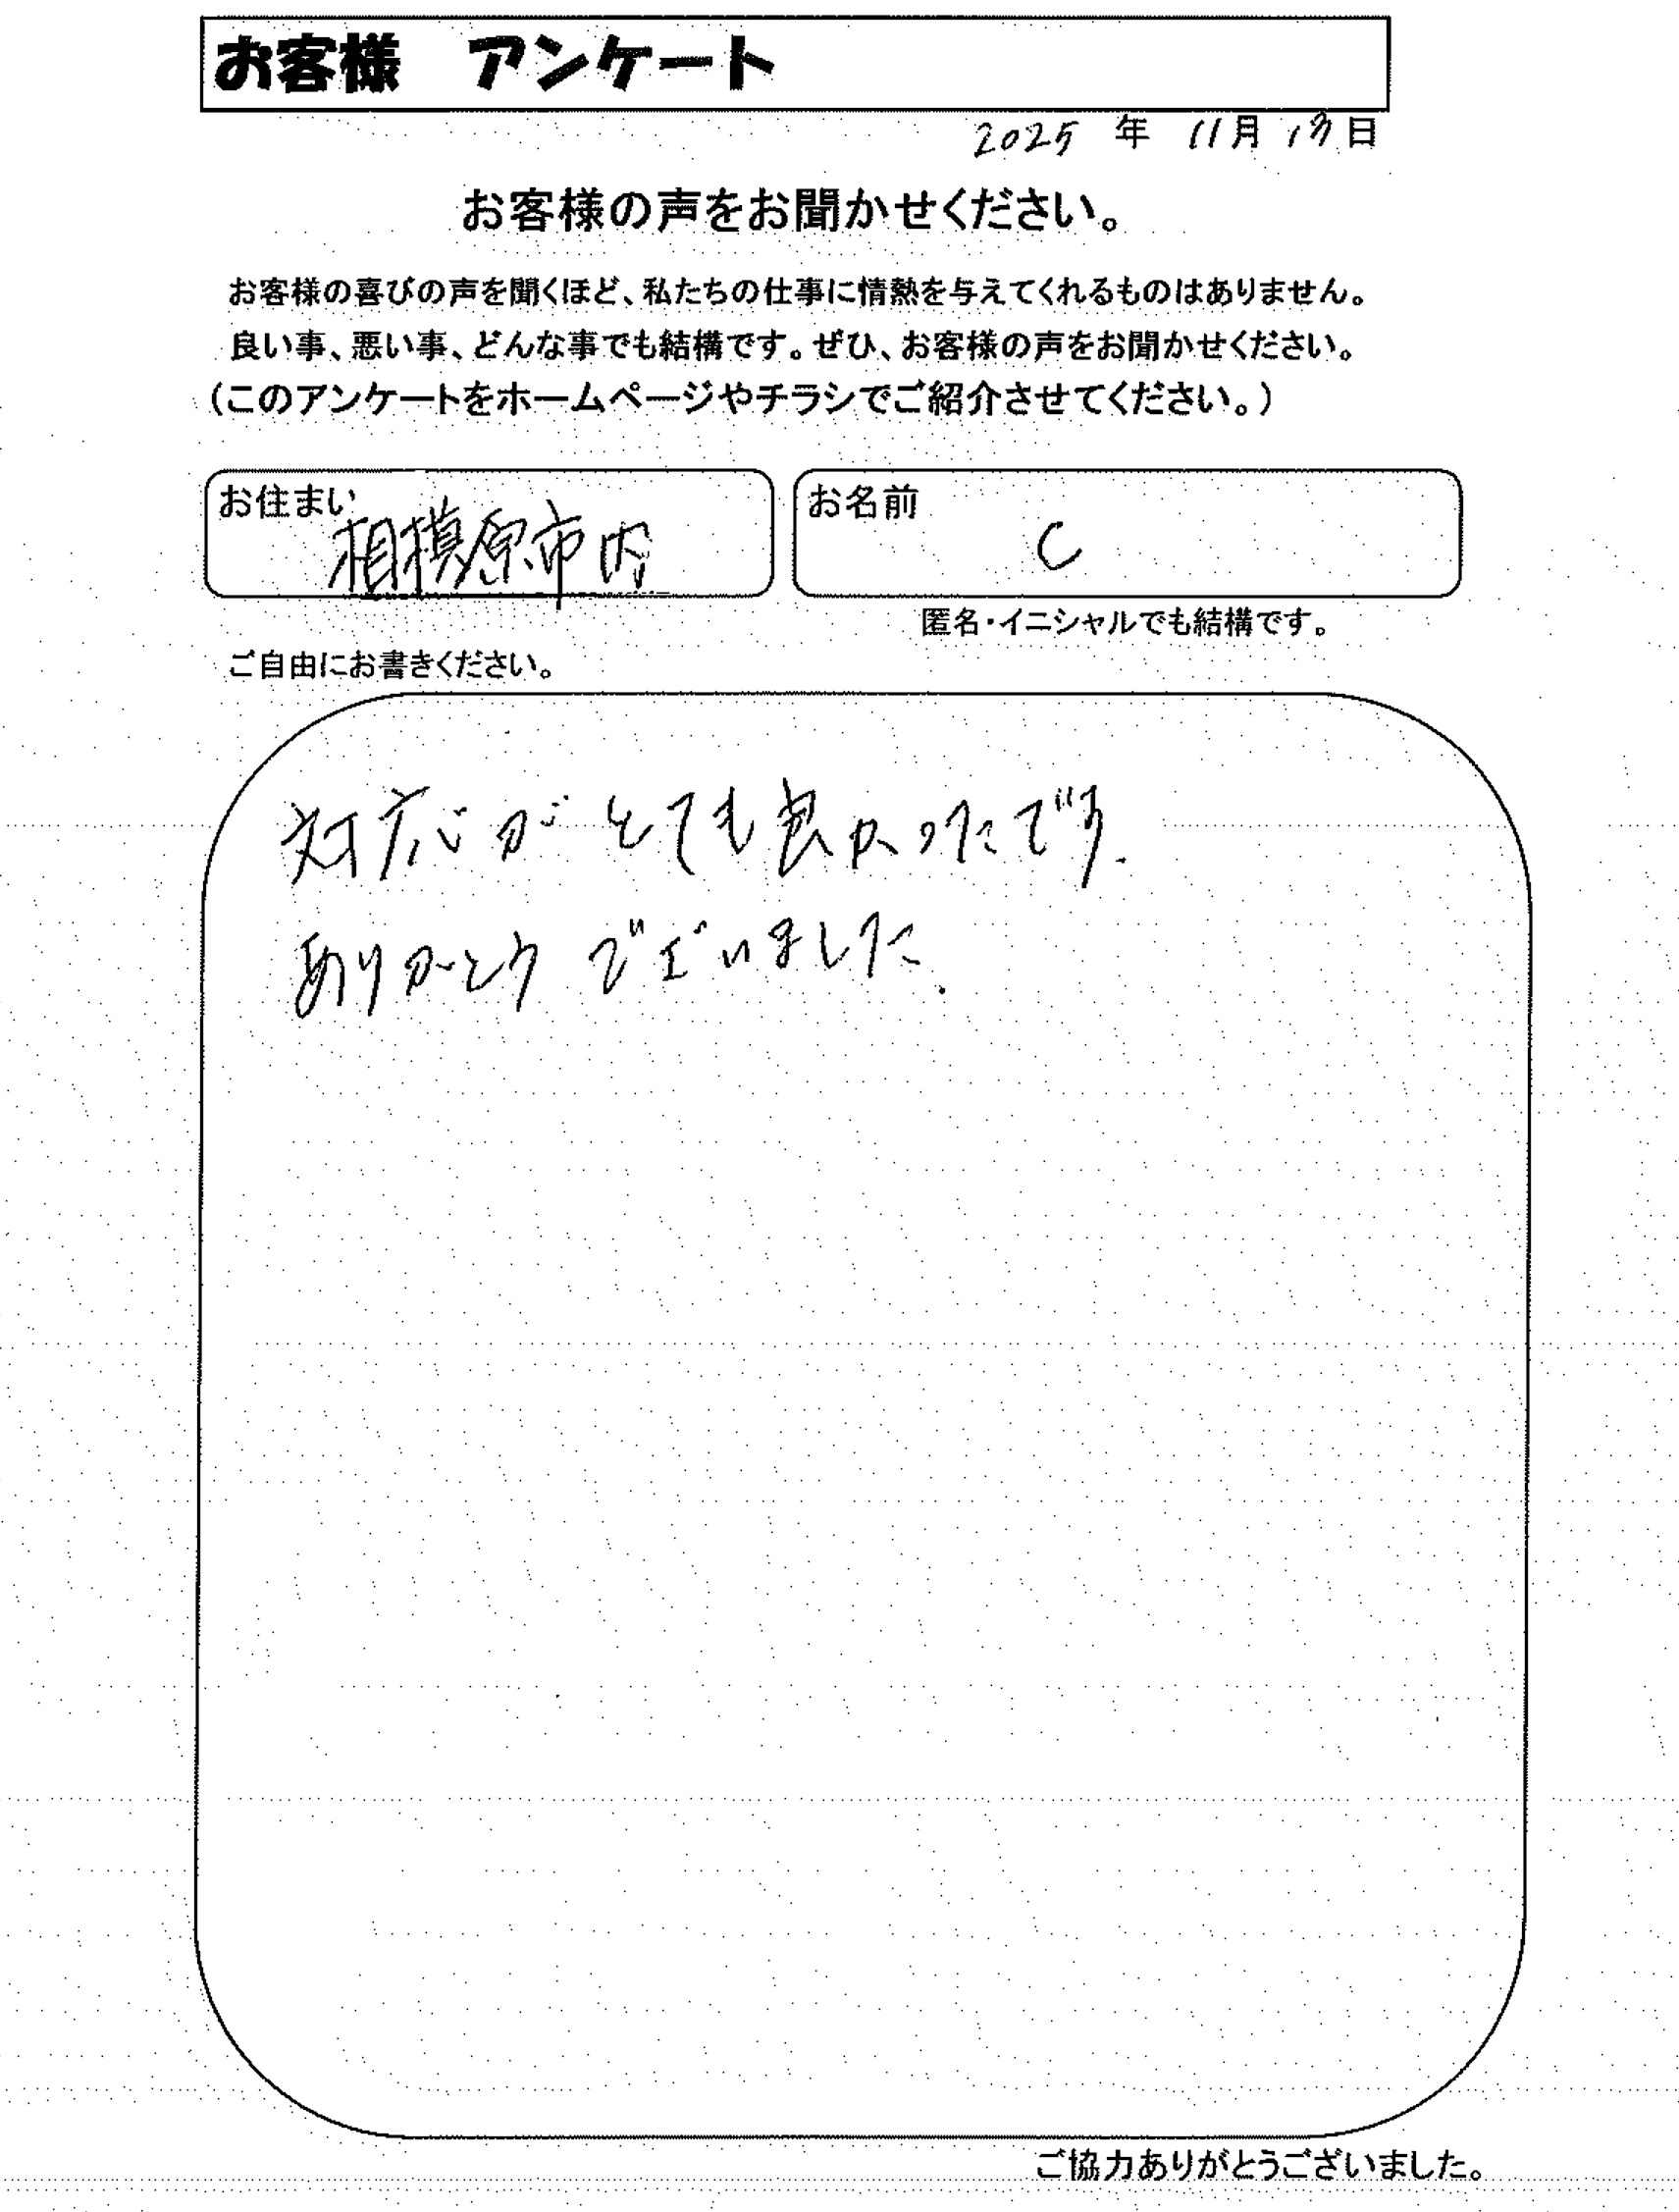 お客様　アンケート
2025 年 11月 13日
お客様の声をお聞かせください。
お客様の喜びの声を聞くほど、私たちの仕事に情熱を与えてくれるものはありません。
良い事、悪い事、どんな事でも結構です。ぜひ、お客様の声をお聞かせください。
（このアンケートをホームページやチラシでご紹介させてください。）
お住まい 相模原市内
お名前 C
匿名・イニシャルでも結構です。
ご自由にお書きください。
対応がとても良かったです.
ありがとうございました.
ご協力ありがとうございました。